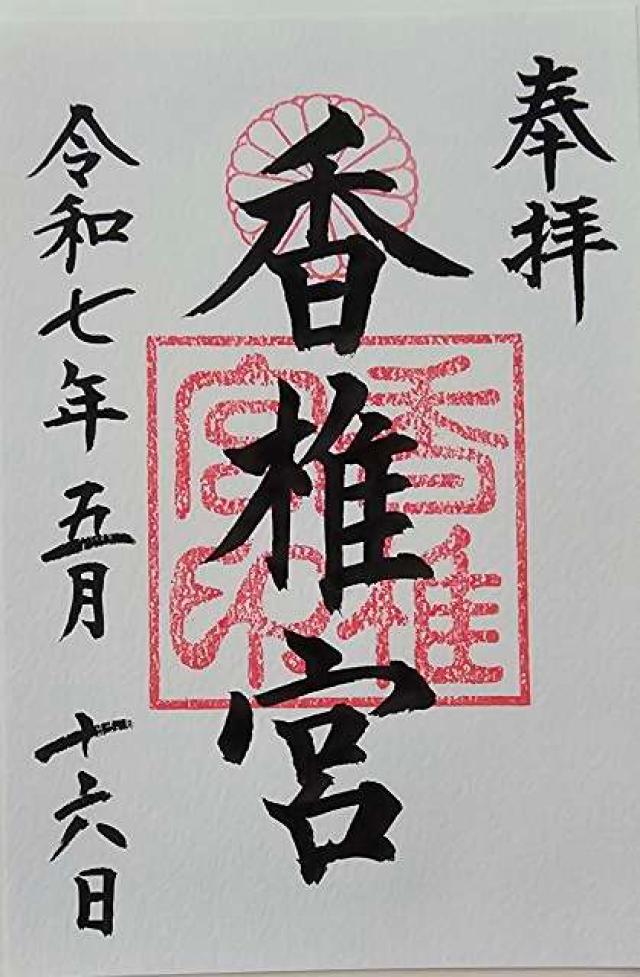 奉拝
香椎宮
香椎宮印
令和七年五月十六日